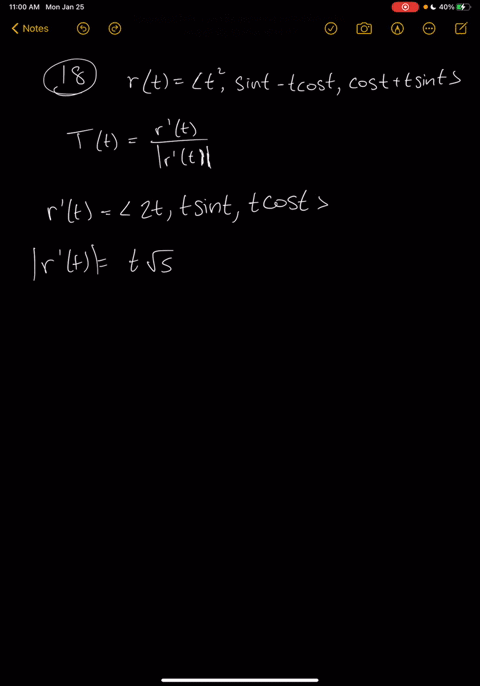 11:00 AM Mon Jan 25 40%
Notes
18 r(t) = <t², sint - tcost, cost + tsint>
T(t) = r'(t) / |r'(t)|
r'(t) = < 2t, tsint, tcost >
|r'(t)| = t√5